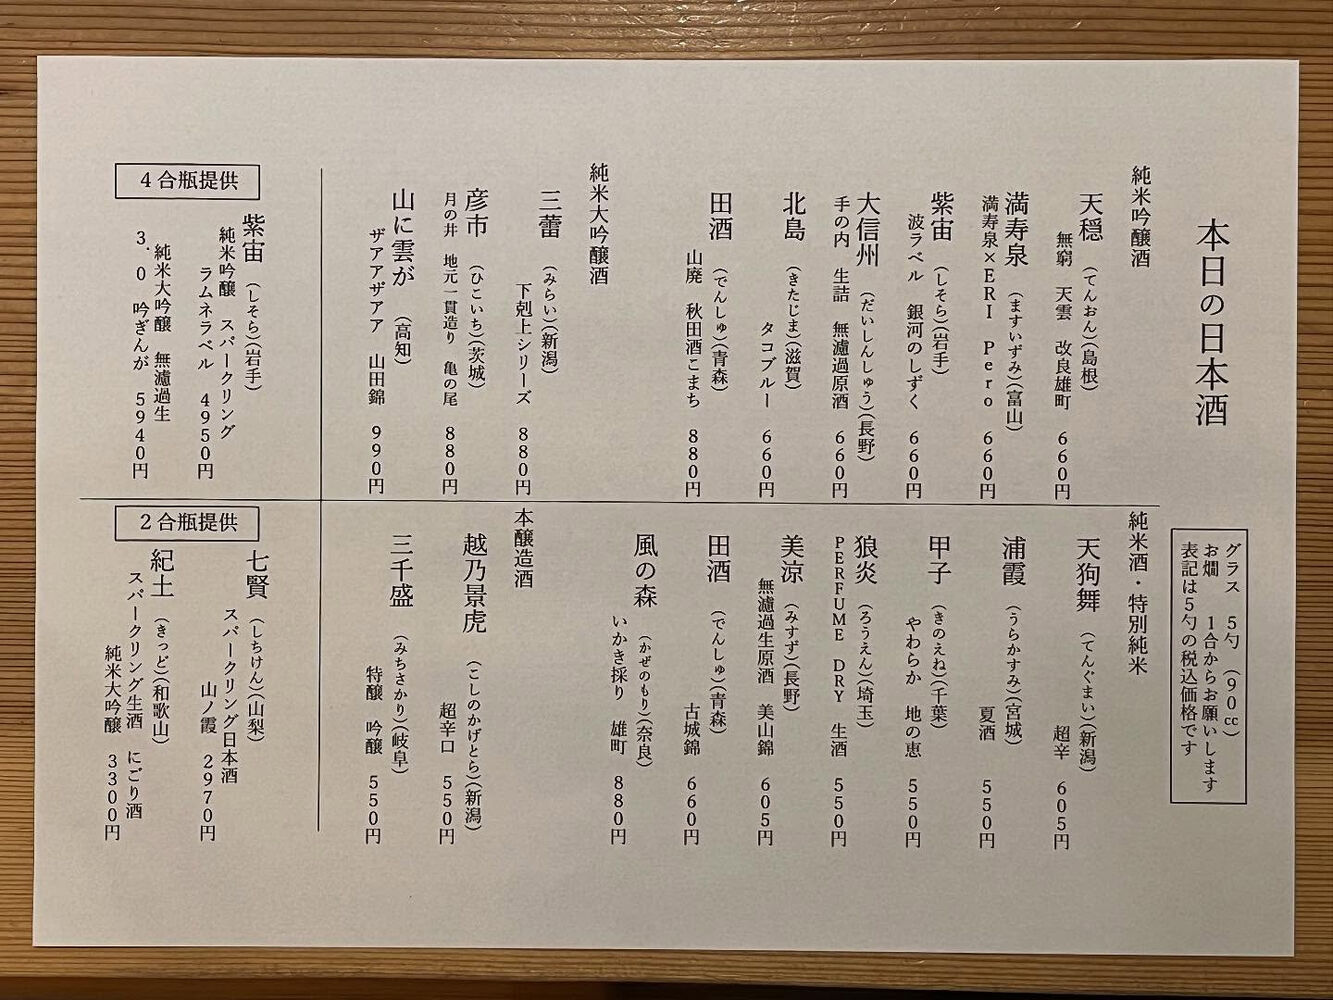 本日の日本酒
グラス 5勺 (90㏄)
お燗 1合からお願いします
表記は5勺の税込価格です
純米吟醸酒
天穏 (てんおん)(島根)
無窮 天雲 改良雄町 660円
満寿泉 (ますいずみ)(富山)
満寿泉×ERI Pero 660円
紫宙 (しそら)(岩手)
波ラベル 銀河のしずく 660円
大信州 (だいしんしゅう)(長野)
手の内 生詰 無濾過原酒 660円
北島 (きたじま)(滋賀)
タコブルー 660円
田酒 (でんしゅ)(青森)
山廃 秋田酒こまち 880円
純米大吟醸酒
三蕾 (みらい)(新潟)
下剋上シリーズ 880円
彦市 (ひこいち)(茨城)
月の井 地元一貫造り 亀の尾 880円
山に雲が (高知)
ザアアザアア 山田錦 990円
純米酒・特別純米
天狗舞 (てんぐまい)(新潟)
超辛 605円
浦霞 (うらかすみ)(宮城)
夏酒 550円
甲子 (きのえね)(千葉)
やわらか 地の恵 550円
狼炎 (ろうえん)(埼玉)
PERFUME DRY 生酒 550円
美涼 (みすず)(長野)
無濾過生原酒 美山錦 605円
田酒 (でんしゅ)(青森)
古城錦 660円
風の森 (かぜのもり)(奈良)
いかき採り 雄町 880円
本醸造酒
越乃景虎 (こしのかげとら)(新潟)
超辛口 550円
三千盛 (みちさかり)(岐阜)
特醸 吟醸 550円
4合瓶提供
紫宙 (しそら)(岩手)
純米吟醸 スパークリング
ラムネラベル 4950円
純米大吟醸 無濾過生
3.0 吟ぎんが 5940円
2合瓶提供
七賢 (しちけん)(山梨)
スパークリング日本酒
山ノ霞 2970円
紀土 (きっど)(和歌山)
スパークリング生酒 にごり酒
純米大吟醸 3300円